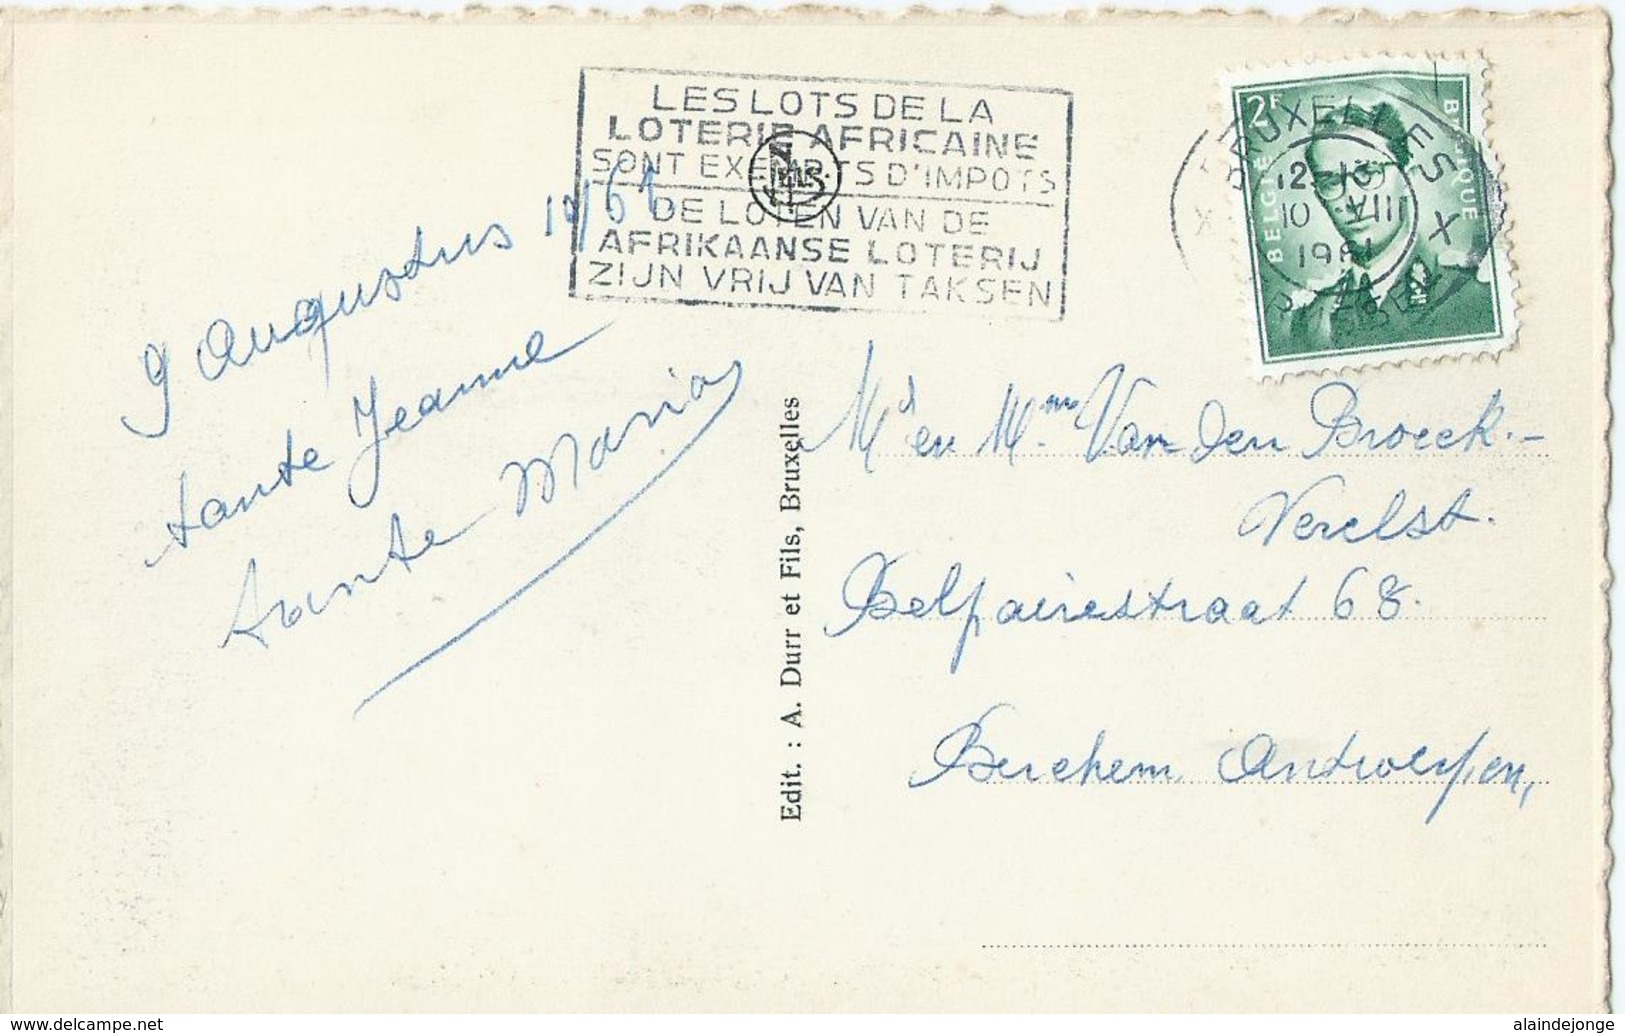 LES LOTS DE LA
LOTERIE AFRICAINE
SONT EXEMPTS D'IMPOTS
DE LOTEN VAN DE
AFRIKAANSE LOTERIJ
ZIJN VRIJ VAN TAKSEN
2F
BELGIE
BELGIQUE
BRUXELLES
X X
10 VIII
1961
BRUSSEL
9 Augustus
tante Jeanne
tante Maria
Edit. : A. Durr et Fils, Bruxelles
Md en Mme Van den Broeck.-
Verelst.
Belpairestraat 68.
Berchem Antwerpen,
www.delcampe.net
alaindejonge